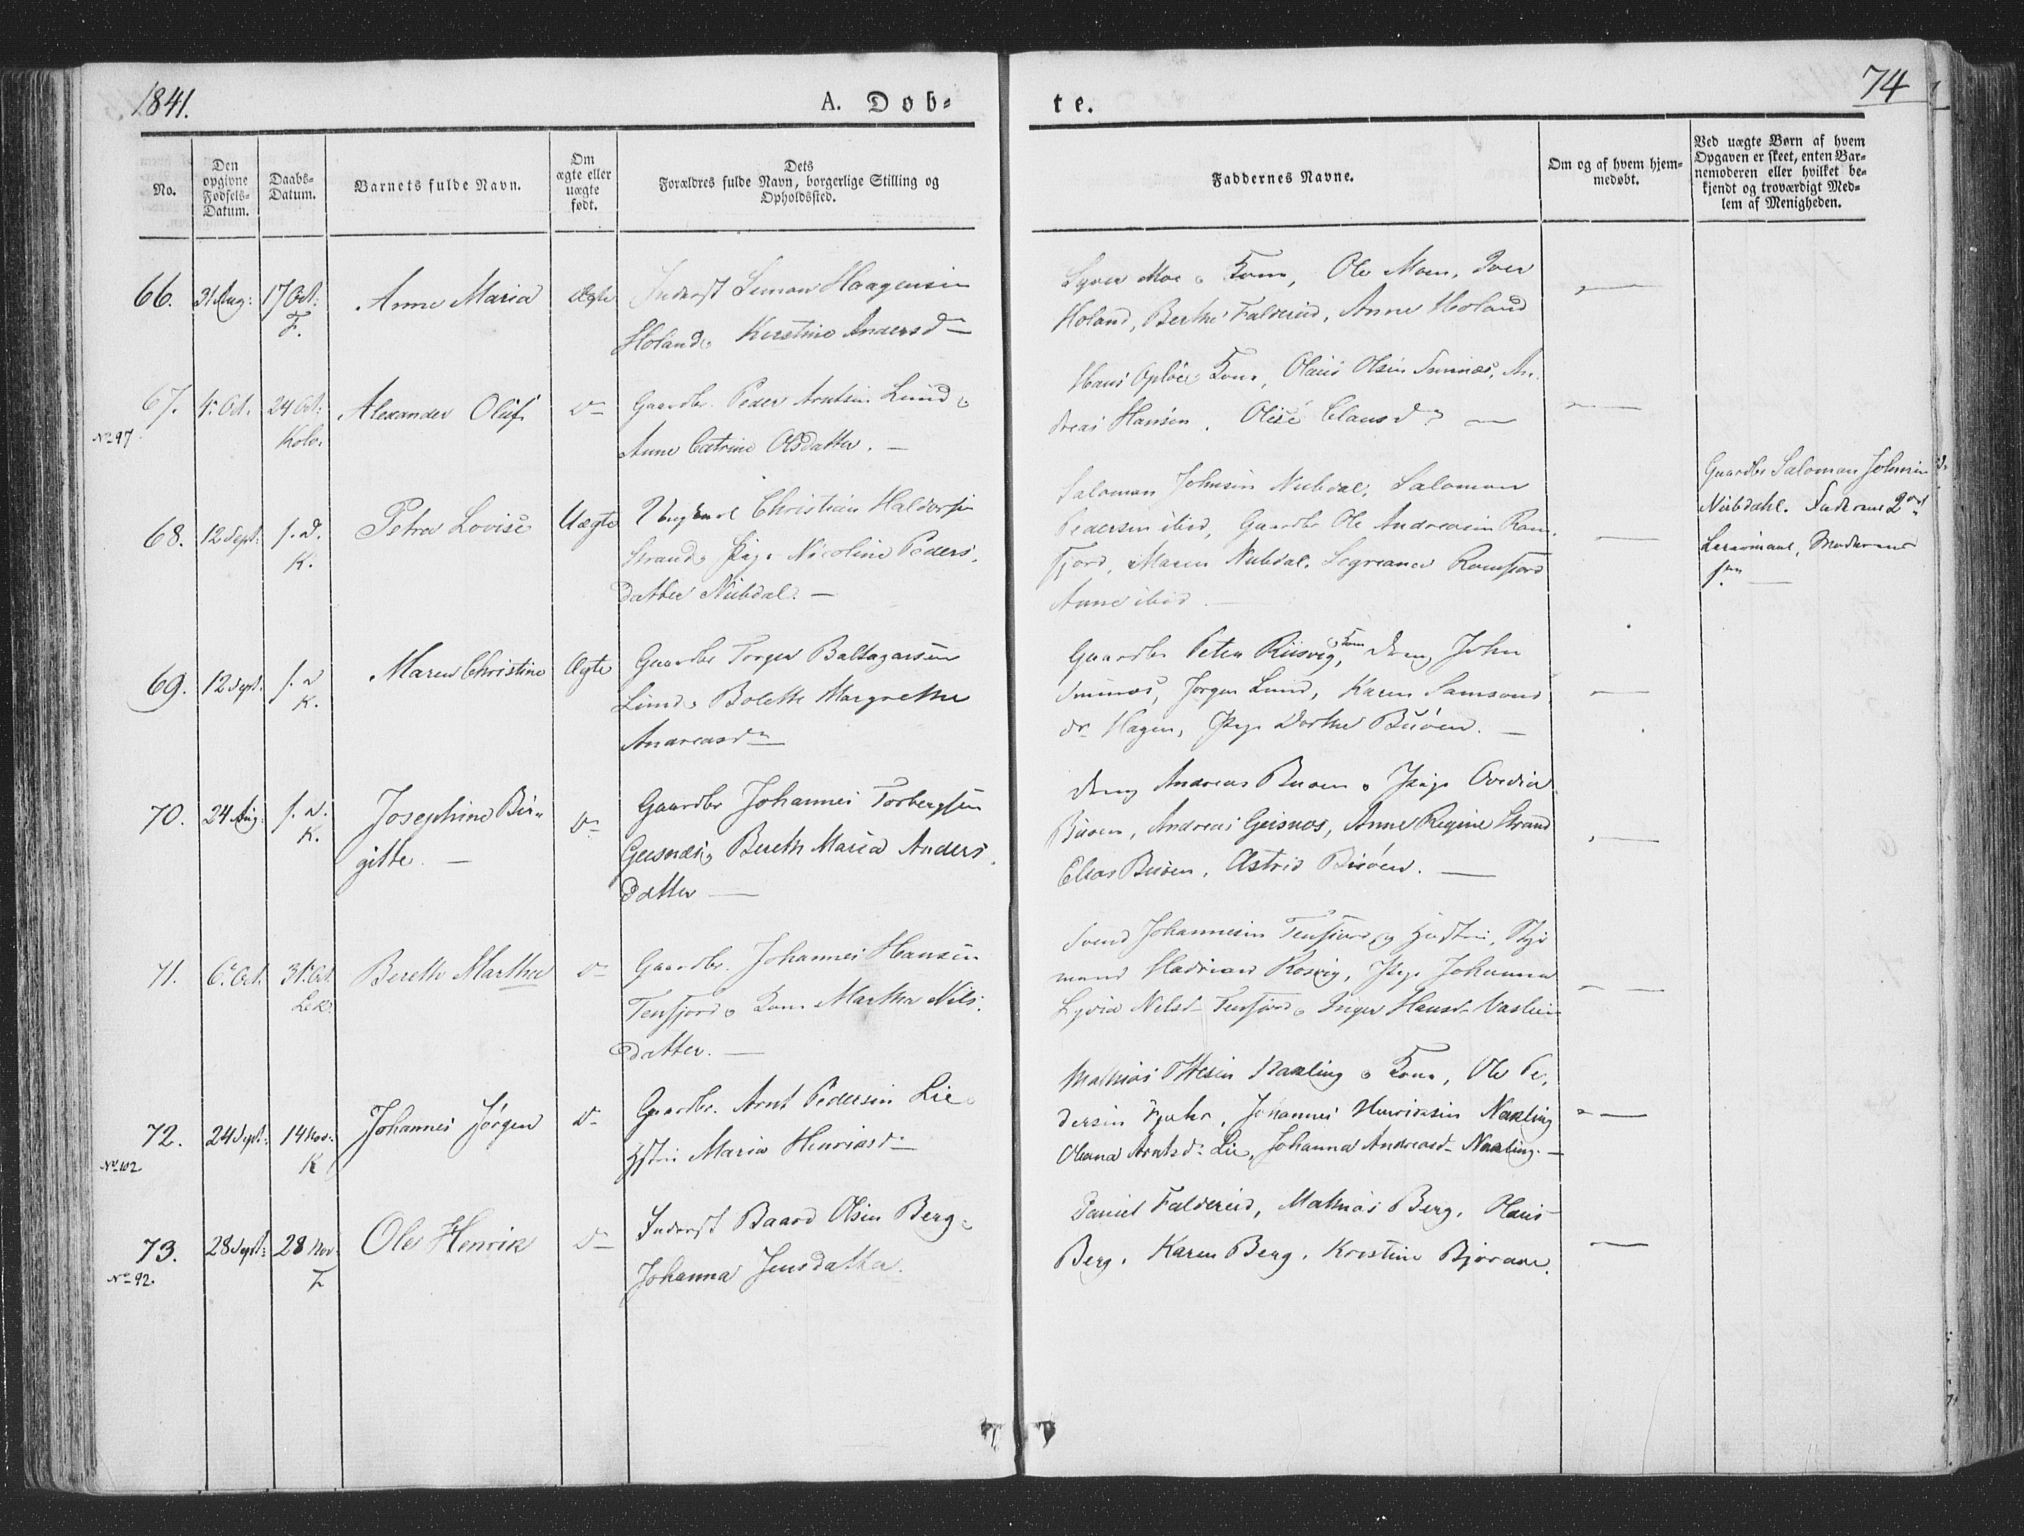 1841.
A. Døb-
te.
74
No.
Den opgivne Fødsels-Datum.
Daabs-Datum.
Barnets fulde Navn.
Om ægte eller uægte født.
Dets Forældres fulde Navn, borgerlige Stilling og Opholdssted.
Faddernes Navne.
Om og af hvem hjemmedøbt.
Ved uægte Børn af hvem
Opgaven er skeet, enten Bar-
nemoderen eller hvilket be-
kjendt og troværdigt Med-
lem af Menigheden.
66. 31 Aug: 17 Oct: F.
Anne Maria
Ægte
Inderst Simon Haagensen
Holand, Kirstine Andersd
Moe Kone, Ole Moen, Iver
Holand, Berthe Faldereid, Anne Holand
67. No 97 4 Oct. 24 Oct: Kolv:
Alexander Oluf
do
Gaardbr. Peder Arntsen Lund
Anne Catrine Olsdatter. —
Hans Opløe Kone, Olaus Olsen Sminæs, An-
dreas Hansen, Olise Clausd —
68. 12 Sept: s. d. K.
Petra Lovise
Uægte
Ungkarl Christian Haldorsen
Strand, Pige Nicoline Peders-
datter Nubdal. —
Salomon Johnsen Nubdal, Salomon
Pedersen ibid, Gaardbr Ole Andreasen Ram-
fjord, Maren Nubdal, Ramfjord
Anne ibid —
Gaardbr Salomon Johnsen
Nubdahl. Faderens 2det
Leiermaal, Moderens
69. 12 Sept. s. d. K.
Maren Christine
Ægte
Gaardbr Torger Baltazarsen
Lund, Bolette Margrethe
Andreasdr
Gaardbr Peter Riisvig, Kone, Dreng John
Sminæs, Jørgen Lund, Karen Samsons
dr Hagen, Pige Dorthe Buøen. —
70. 24 Aug: s. d. K.
Josephine Bir-
gitte. —
do
Gaardbr Johannes Torbergsen
Geisnæs, Bereth Maria Anders-
datter —
Dreng Andreas Buøen, Pige Ovedia
Buøen, Andreas Geisnes, Anne Regine Strand
Elias Buøen, Astrid Buøen. —
71. 6 Oct. 31 Oct. Lek:
Bereth Martha
do
Gaardbr. Johannes Hansen
Tenfjord, Kone Martha Nils-
datter. —
Svend Johannesen Tenfjord og Hustru, Styr-
mand Hadrian Rosvig, Pige Johanna
Lyvia Nelsd Tenfjord, Inger Hansd
72. No 102 24 Sept: 14 Nov: K
Johannes Jørgen
do
Gaardbr. Arnt Pedersen Lie
Hstru Maria Henriksd
Mathias Ottesen Naaling Kone, Ole Pe-
dersen, Johannes Henriksen Naaling
Oleana Arntsd: Lie, Johanna Andreasd Naaling. —
73. No 92. 28 Sept: 28 Nov: F
Ole Henrik
do
Inderst Baard Olsen Berg
Johanna Jensdatter.
Daniel Faldereid, Mathias Berg, Olaus
Berg, Karen Berg, Kristine Bjøraae.